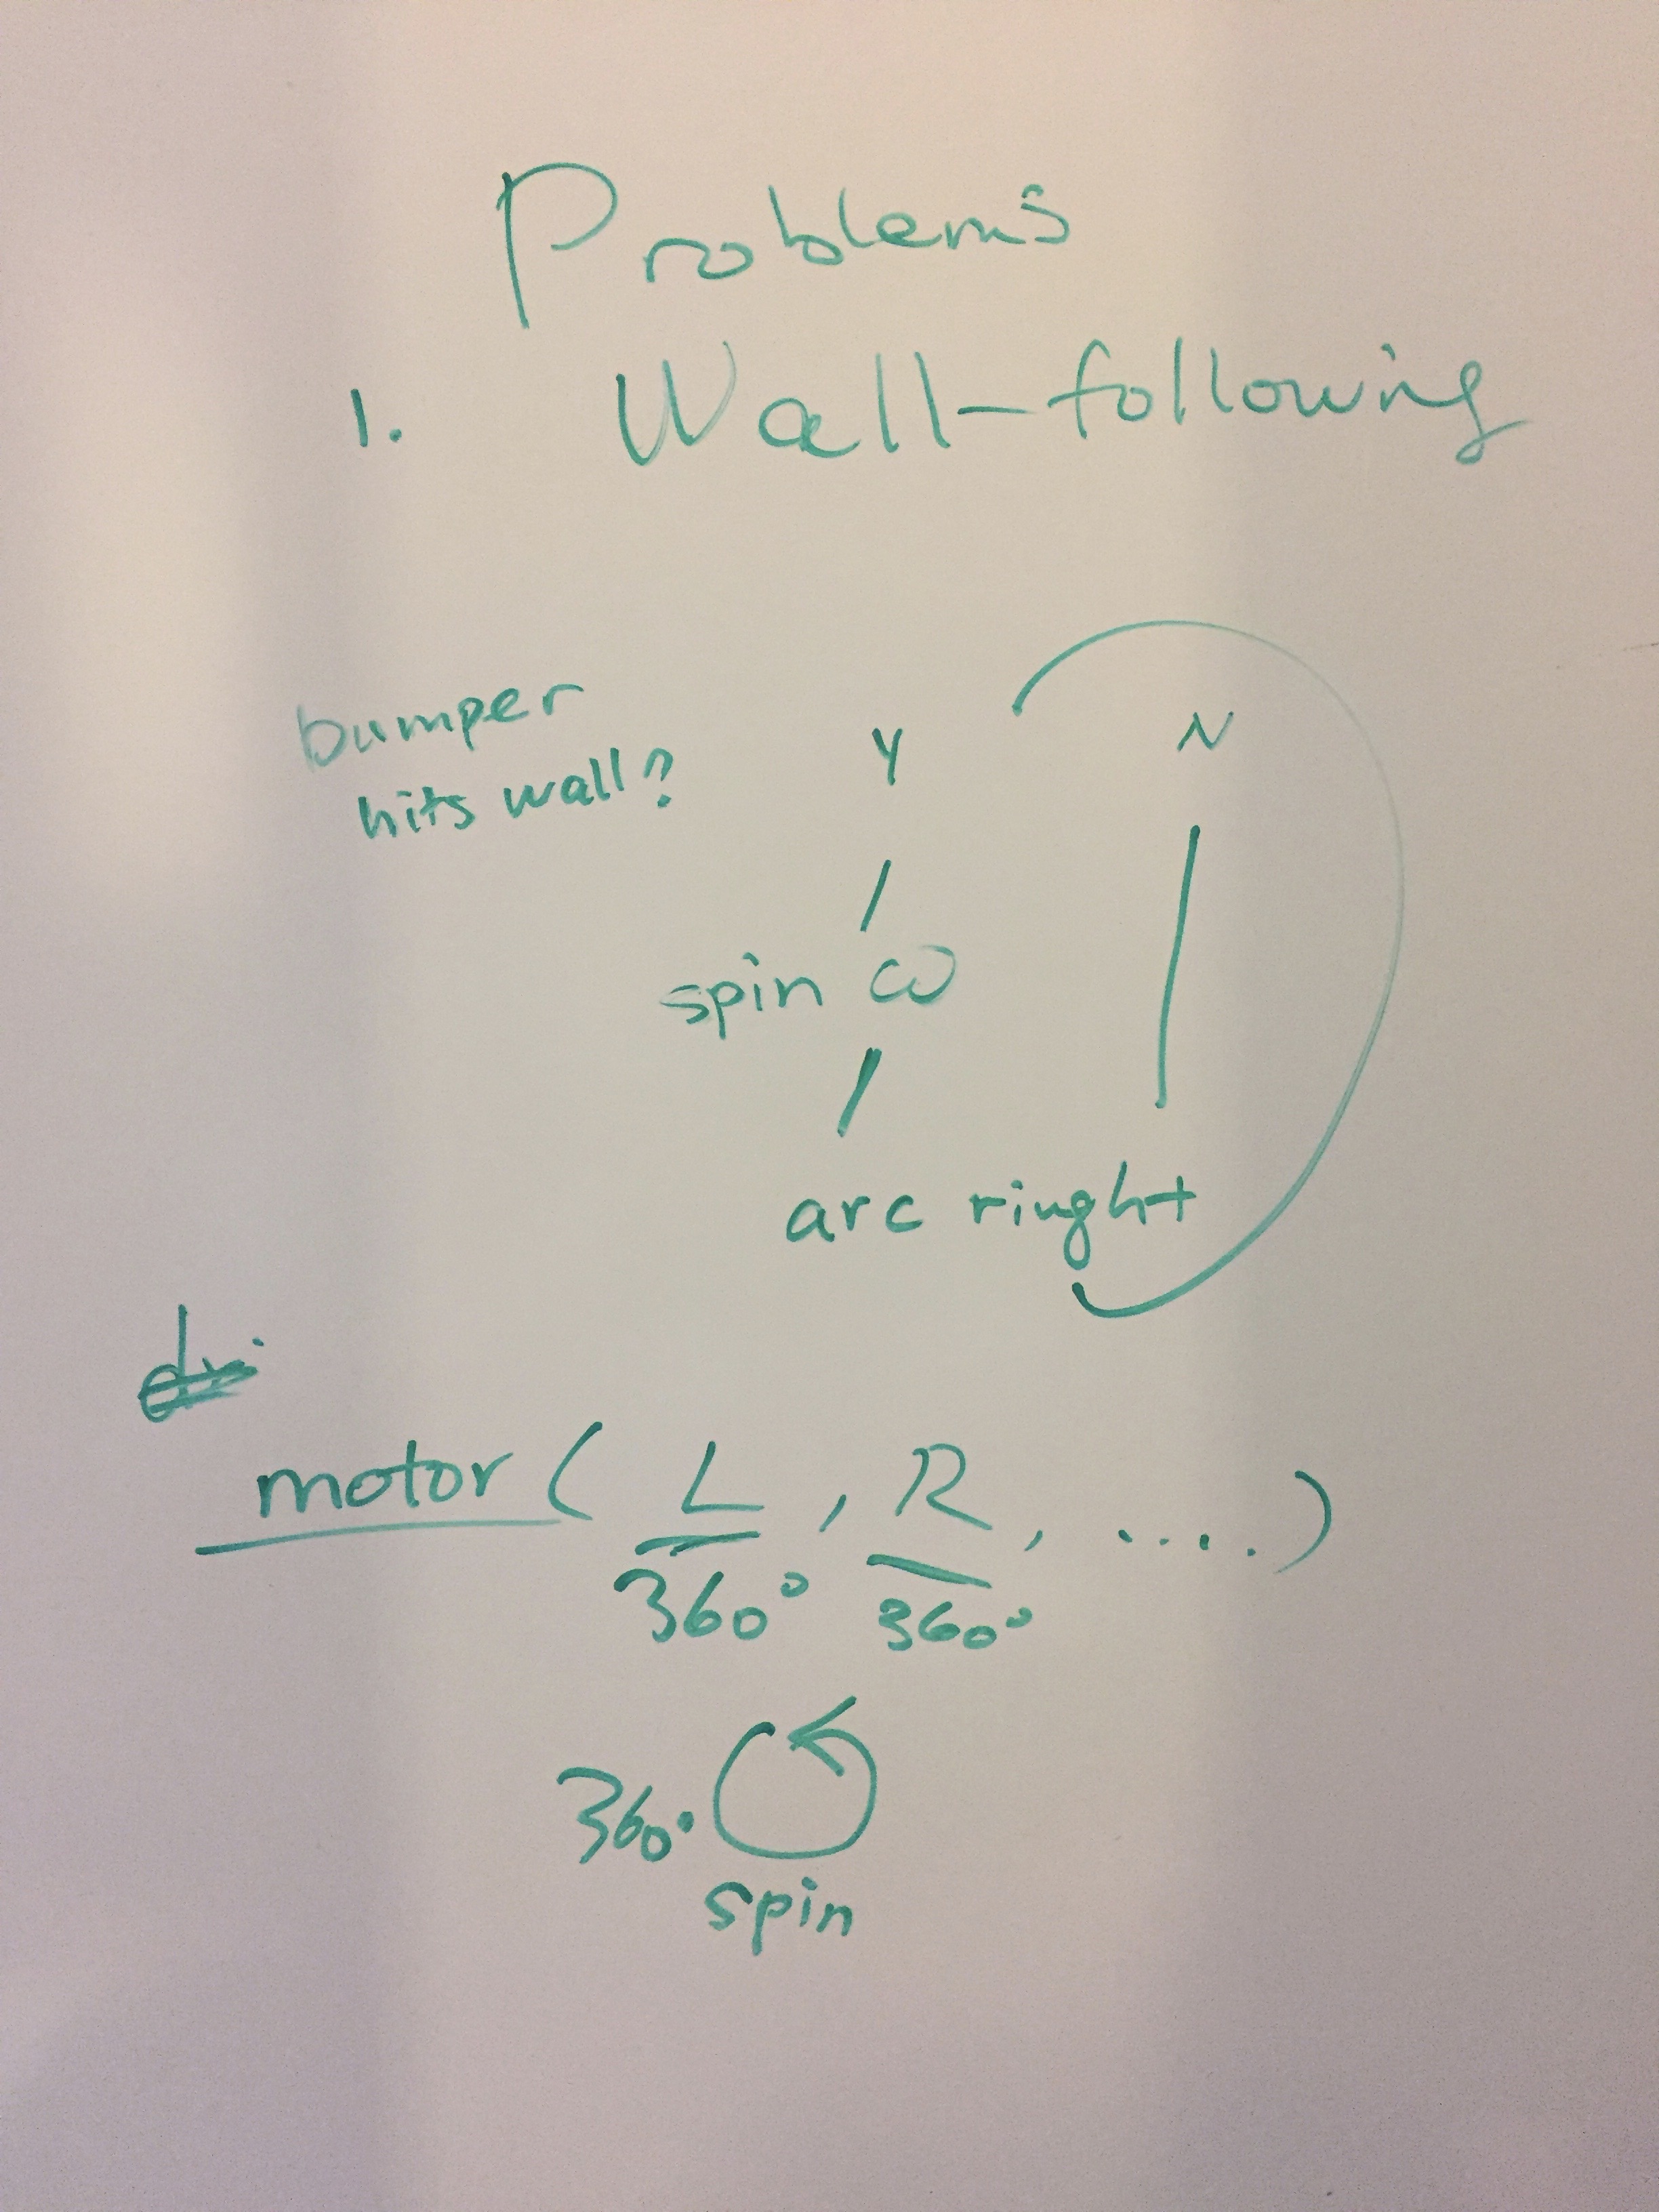 Problems
1. Wall-following
bumper
hits wall?
Y N
spin ω
arc ringht
motor ( L , R , .... )
360° 360°
360°
spin